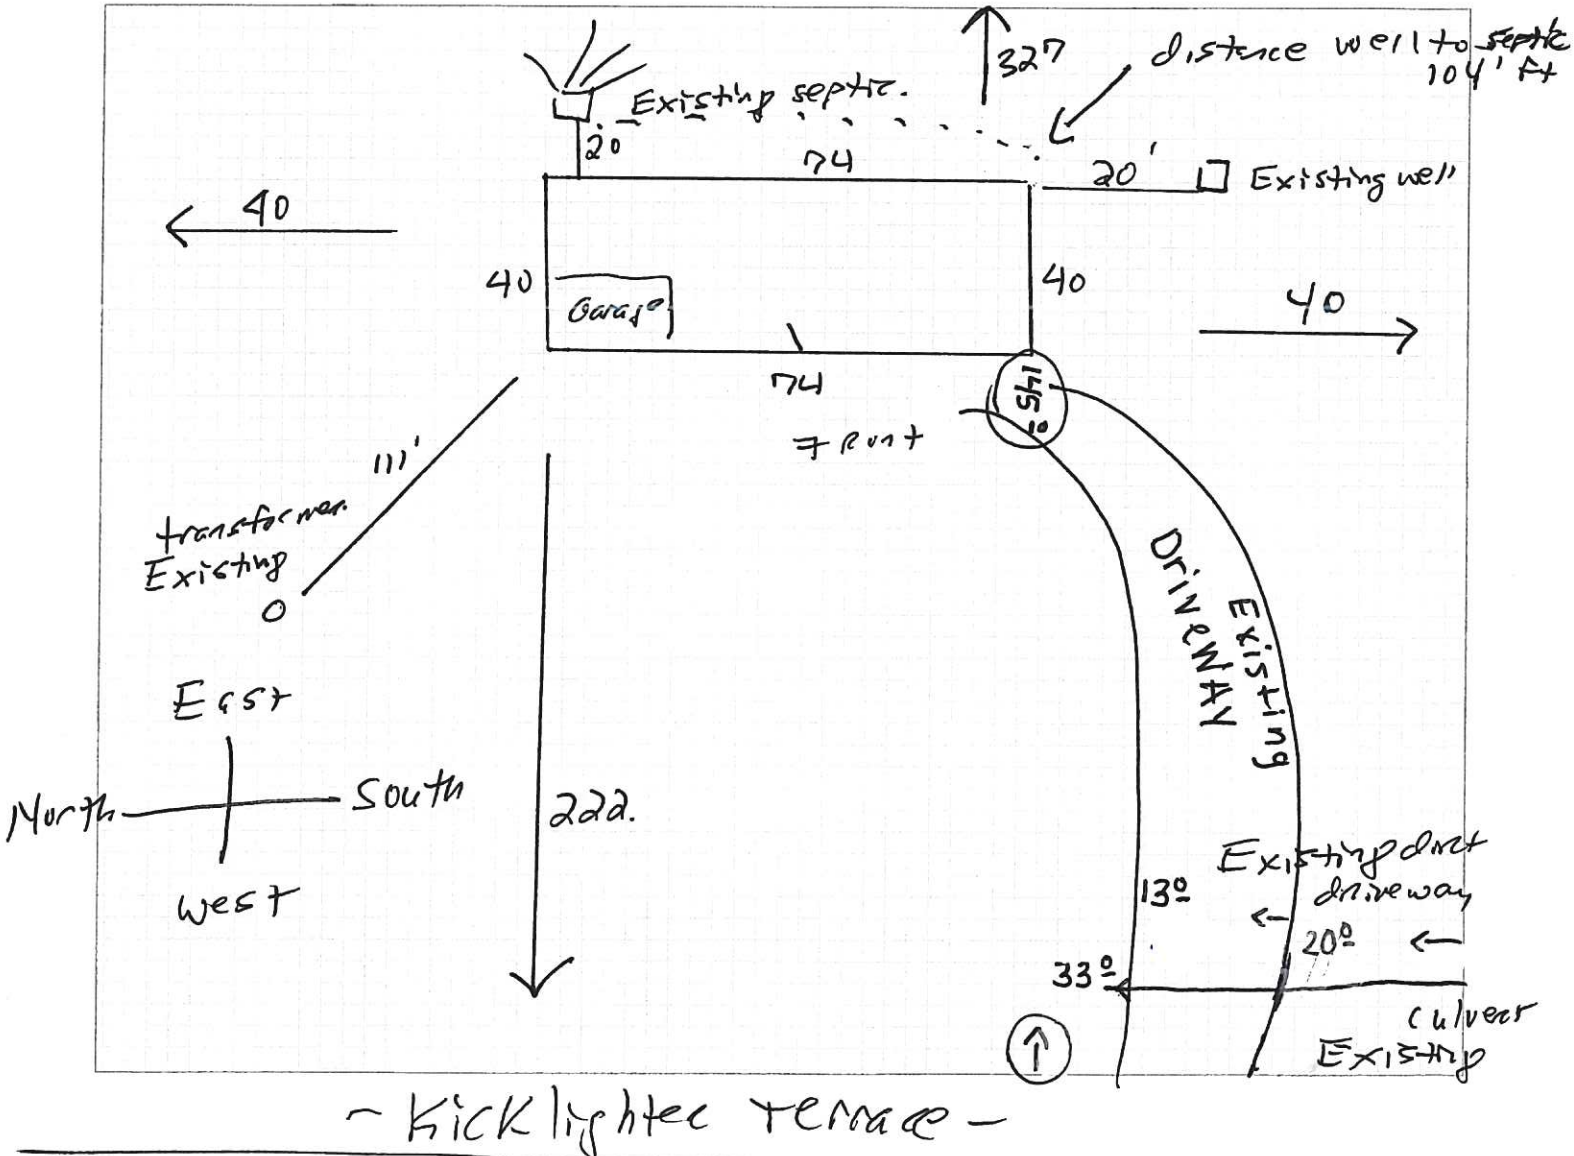 327
distance well to septic
104' ft
Existing septic.
20
74
20'
Existing well
40
40
Garage
40
40
74
145
Front
111'
transformer
Existing
East
North
South
West
222.
DriveWAY
Existing
Existing dirt
driveway
13º
20º
33º
Culvert
Existing
- Kicklighter Terrace -